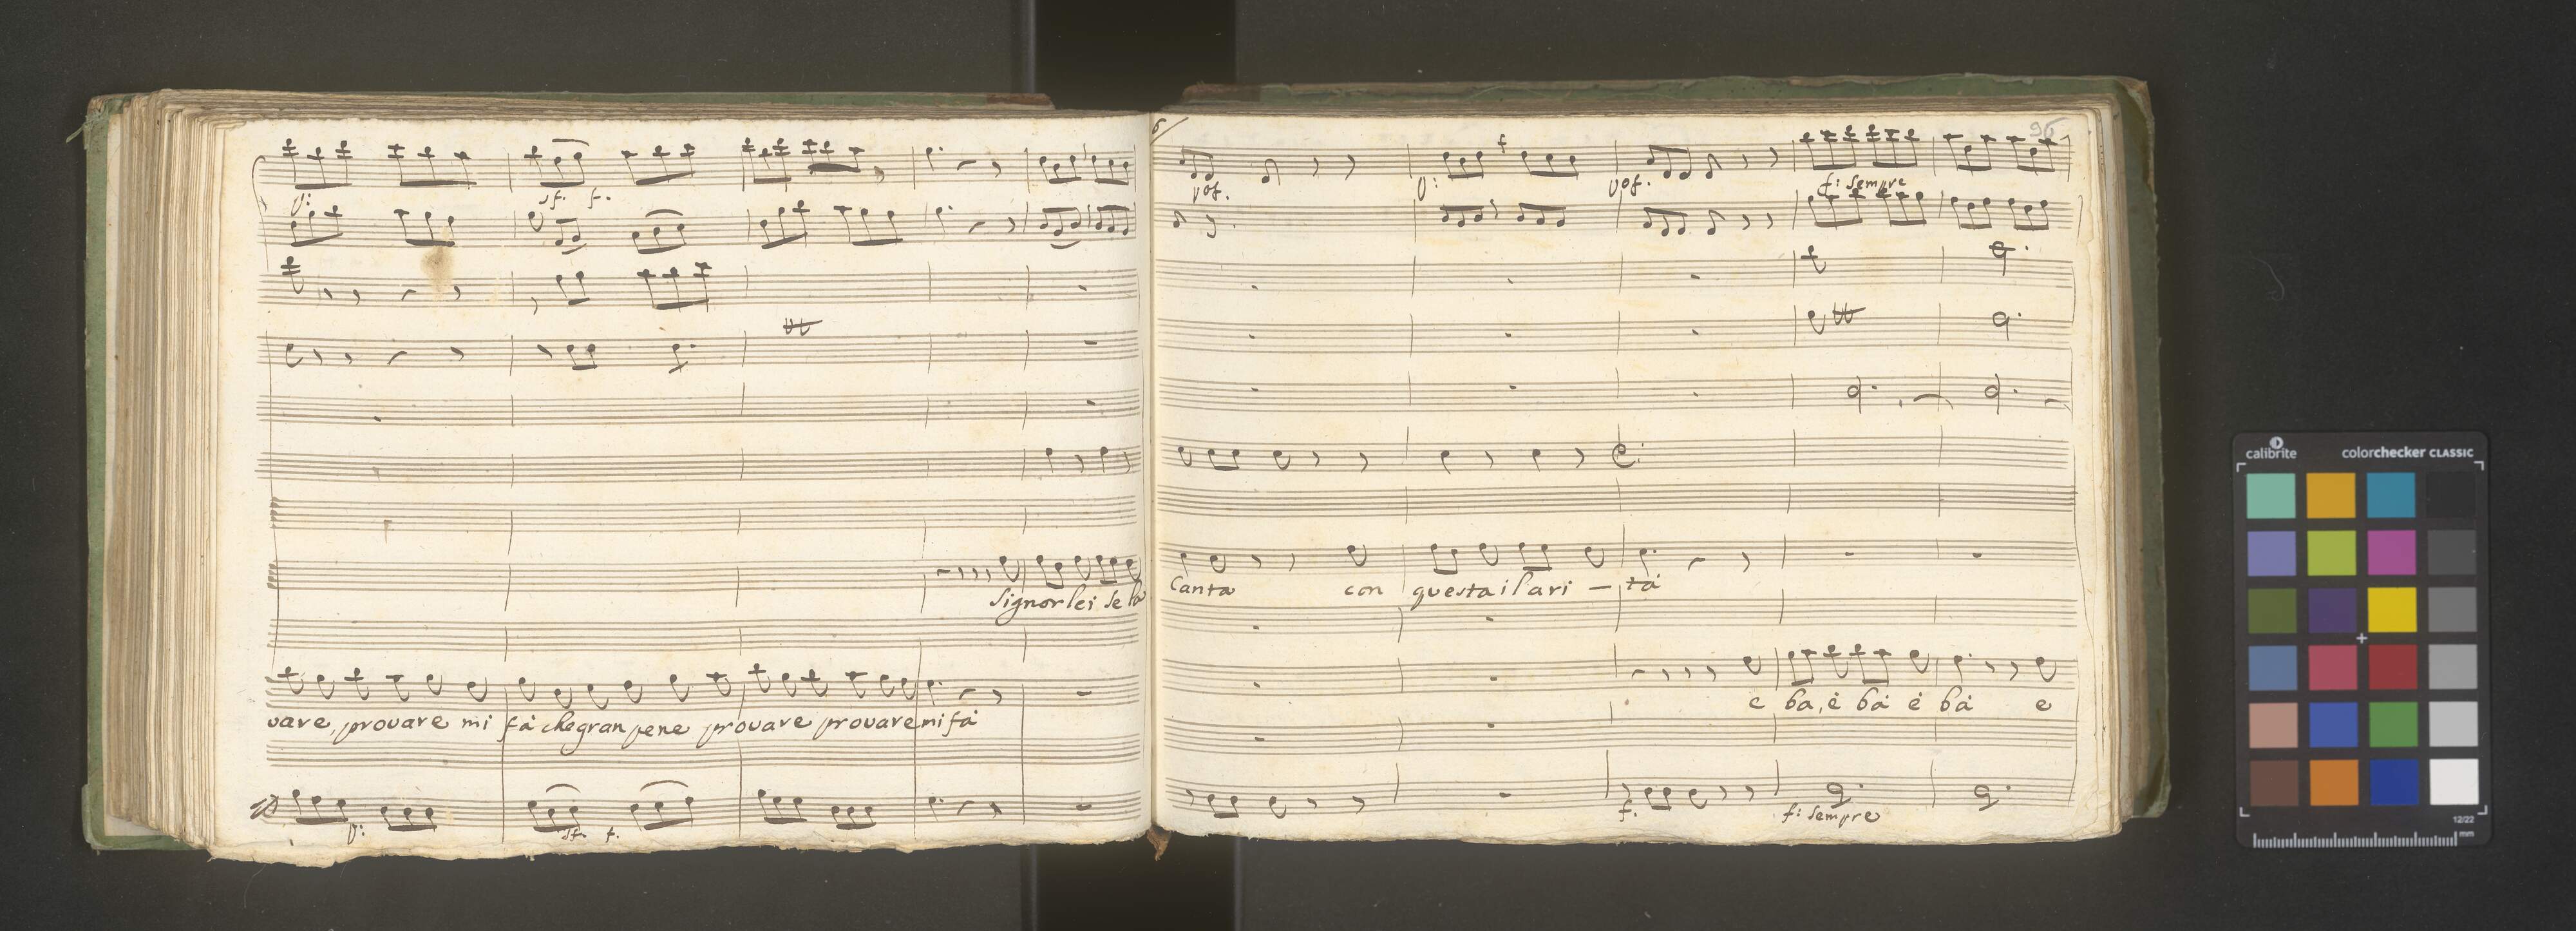 p: sf. f.
Signor lei se la
vare, provare mi fà che gran pene provare provare mi fà
p: sf. f.
6
96
pof. p: pof. f: Sempre
Canta con questa ilari - tà
e ba, è bà è bà e
f. f: Sempre
calibrite colorchecker CLASSIC
12/22
mm